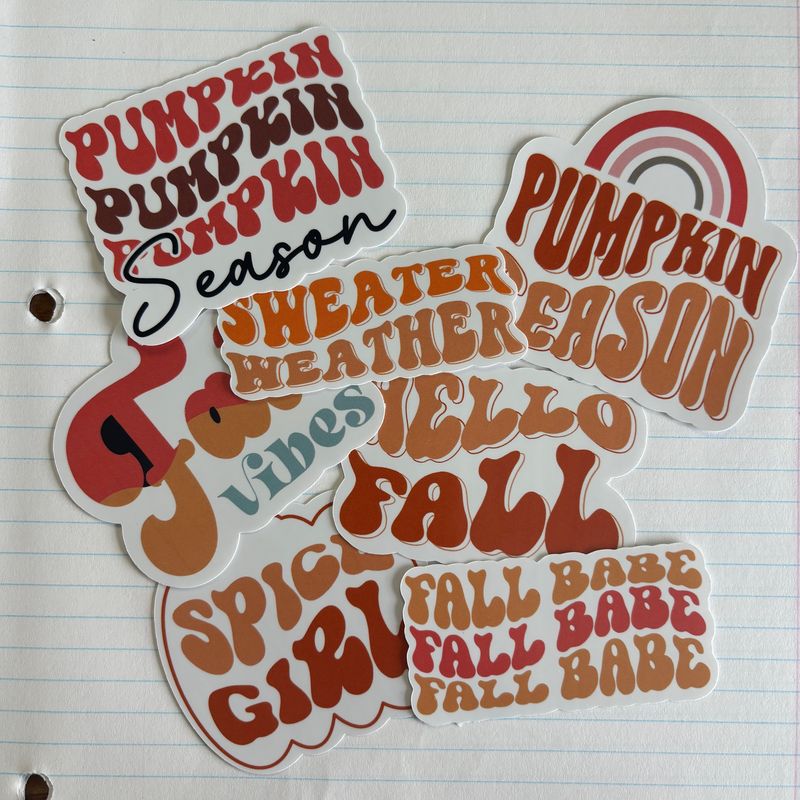 PUMPKIN
PUMPKIN
PUMPKIN
Season
PUMPKIN
EASON
SWEATER
WEATHER
vibes
HELLO
FALL
SPICE
GIRL
FALL BABE
FALL BABE
FALL BABE